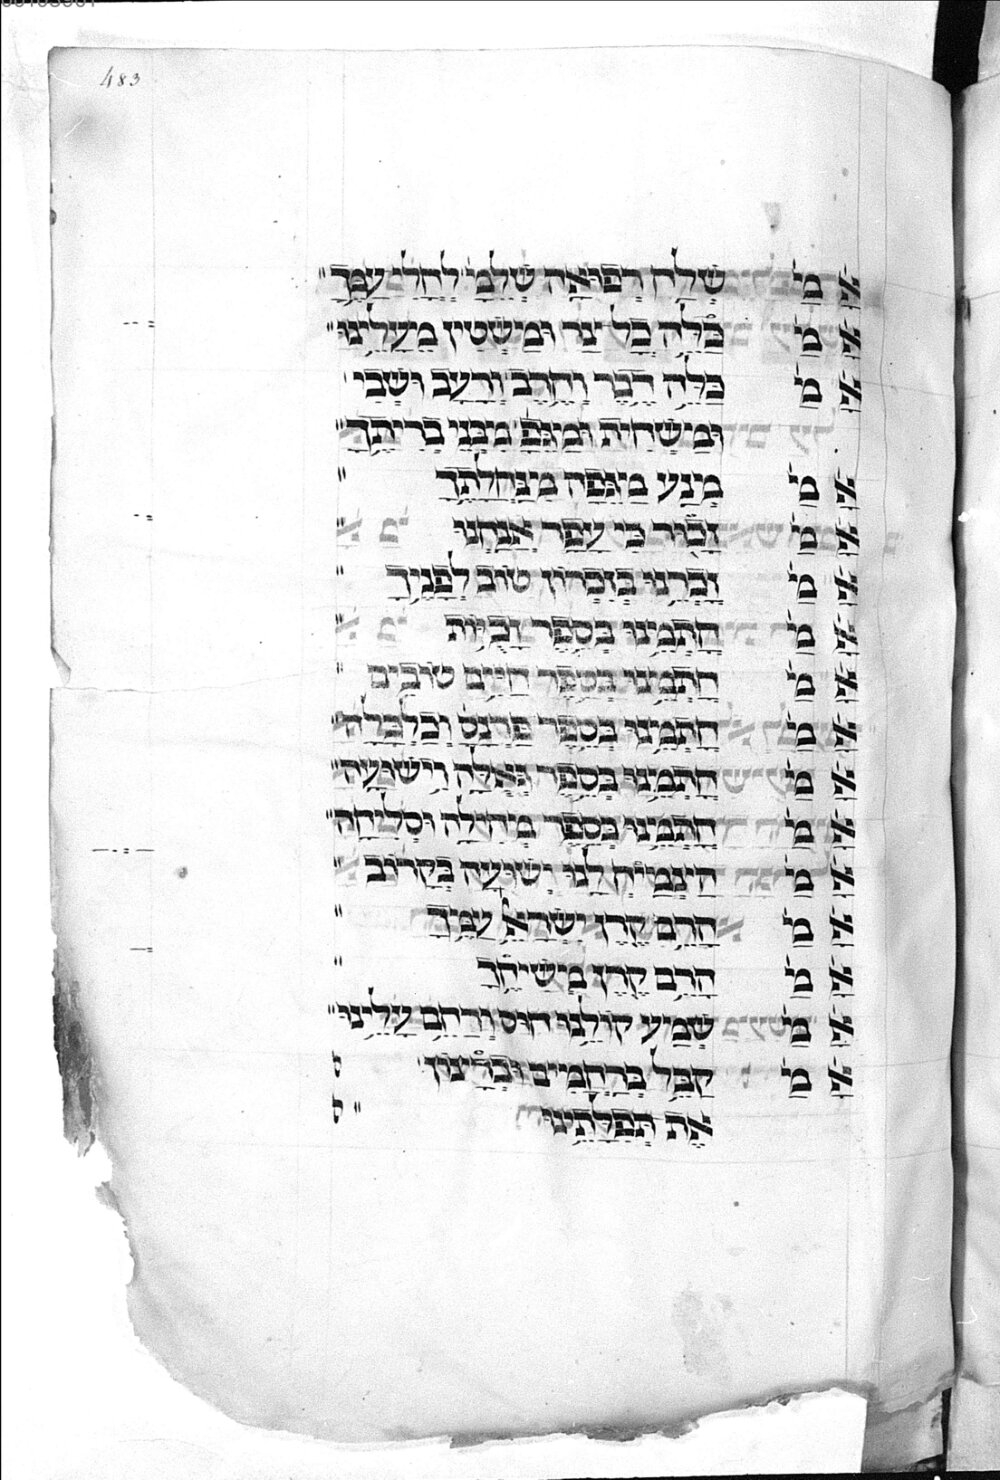 483
א מ' שְׁלַח רְפוּאָה שְׁלֵמָ' לְחֳלֵי עַמֶּךָ"
א מ' כַּלֵּה כָל צָר וּמַשְׂטִין מֵעָלֵינוּ"
א מ' כַּלֵּה דֶבֶר וְחֶרֶב וְרָעָב וּשְׁבִי'
וּמַשְׁחִית וּמַגֵּפָ' מִבְּנֵי בְרִיתֶךָ"
א מ' מְנַע מַגֵּפָה מִנַּחֲלָתֶךָ"
א מ' זָכוּר כִּי עָפָר אֲנָחְנוּ"
א מ' זָכְרֵנוּ בְּזִכְרוֹן טוֹב לְפָנֶיךָ"
א מ' חָתְמֵינוּ בְּסֵפֶר זָכִיּוֹת"
א מ' חָתְמֵינוּ בְּסֵפֶר חַיִּים טוֹבִים"
א מ' חָתְמֵינוּ בְּסֵפֶר פַּרְנָס' וְכַלְכָּלָה"
א מ' חָתְמֵינוּ בְּסֵפֶר גְּאֻלָּה וִישׁוּעָה"
א מ' חָתְמֵינוּ בְּסֵפֶר מְחִילָה וּסְלִיחָה"
א מ' הַצְמַיח לָנוּ יְשׁוּעָה בְּקָרוֹב"
א מ' הָרֵם קֶרֶן יִשְׂרָאֵל עַמֶּיךָ"
א מ' הָרֵם קֶרֶן מְשִׁיחֶךָ"
א מ' שְׁמַע קוֹלֵנוּ חוּס וְרַחֵם עָלֵינוּ"
א מ' קַבֵּל בְּרַחֲמִים וּבְרָצוֹן'
אֶת תְּפִלָּתֵינוּ" ס